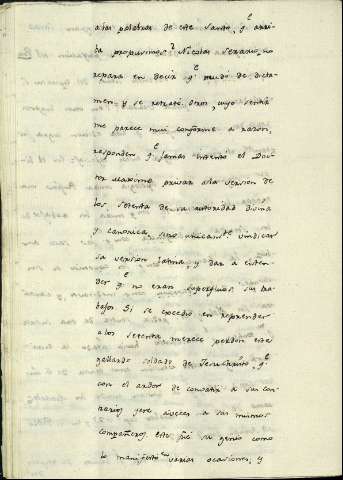 a las palabras de este santo, q.e arri-
ba propusimos? Nicolas Serario, no
repara en decir q.e mudó de dicta-
men y se retrató. Otros, cuyo sentir
me parece mui conforme a razon,
responden q.e jamas intentó el Doc-
tor maximo privar a la version de
los setenta de su autoridad divina
y canonica, sino unicam.te vindicar
su version latina, y dar a enten-
der q.e no eran superfluos sus tra-
bajos. Si se excedió en reprender
a los setenta merece perdon este
gallardo soldado de Jesuchristo, q.e
con el ardor de convatir a sus con-
trarios here aveces a sus mismos
compañeros. Este fué su genio como
lo manifestó en varias ocasiones, y